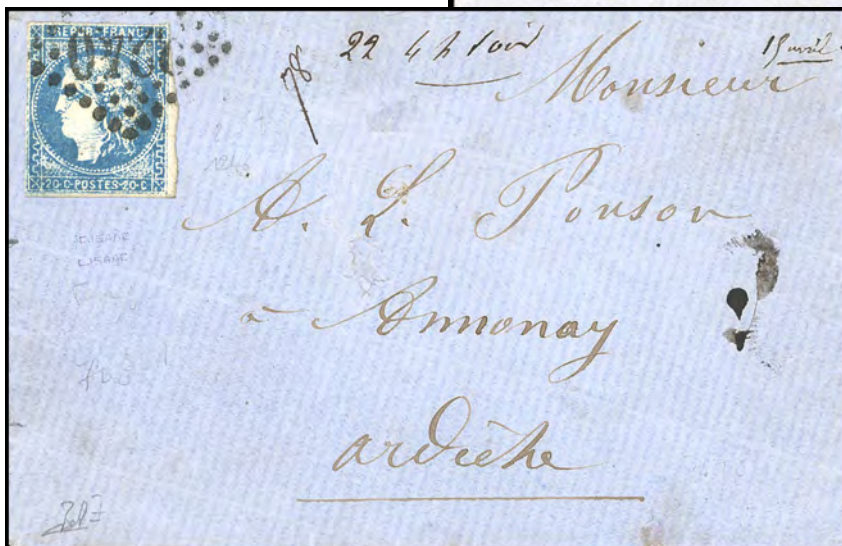 REPUB·FRANC
20·C·POSTES·20·C
22 4 h soir
15 avril
Monsieur
A. L. Ponson
à Annonay
ardèche